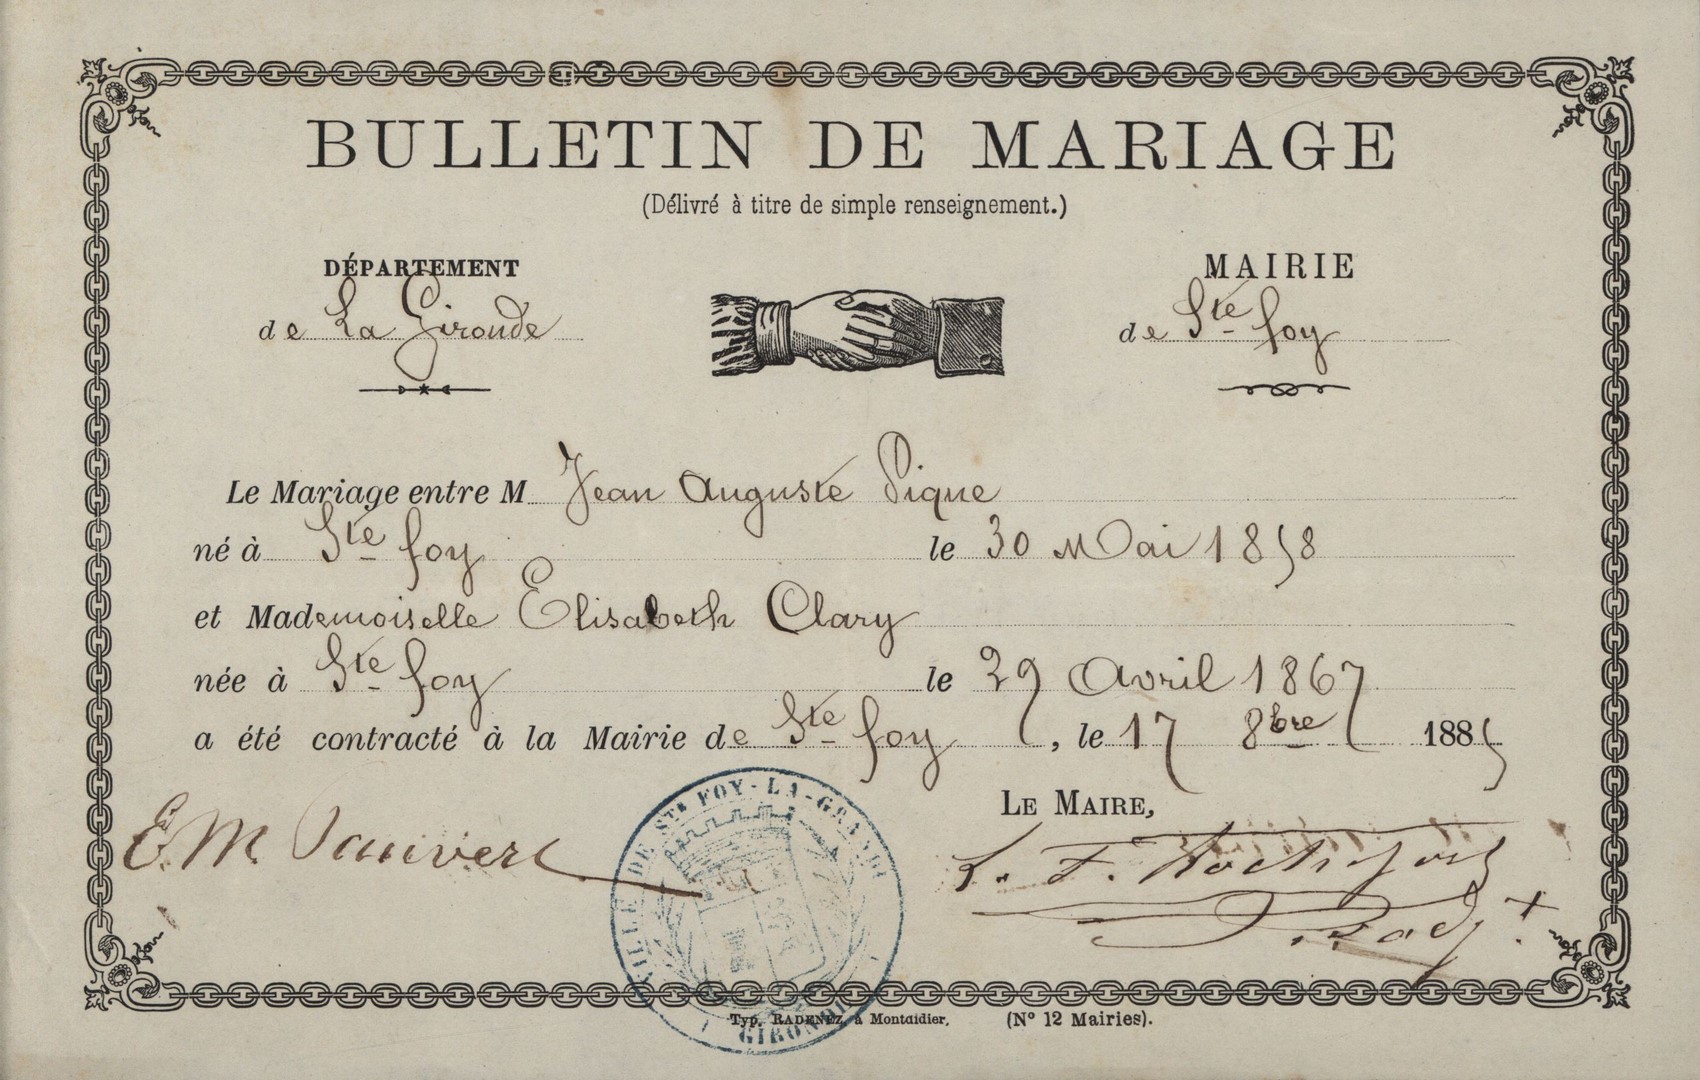 BULLETIN DE MARIAGE
(Délivré à titre de simple renseignement.)
DÉPARTEMENT
de La Gironde
MAIRIE
de Ste foy
Le Mariage entre M Jean Auguste Pique
né à Ste foy le 30 Mai 1858
et Mademoiselle Elisabeth Clary
née à Ste foy le 29 Avril 1867
a été contracté à la Mairie de Ste foy, le 17 8bre 1885
LE MAIRE,
E. M.
VILLE DE STE FOY-LA-GRANDE
GIRONDE
Typ. RADENEZ, à Montdidier.
(N° 12 Mairies).